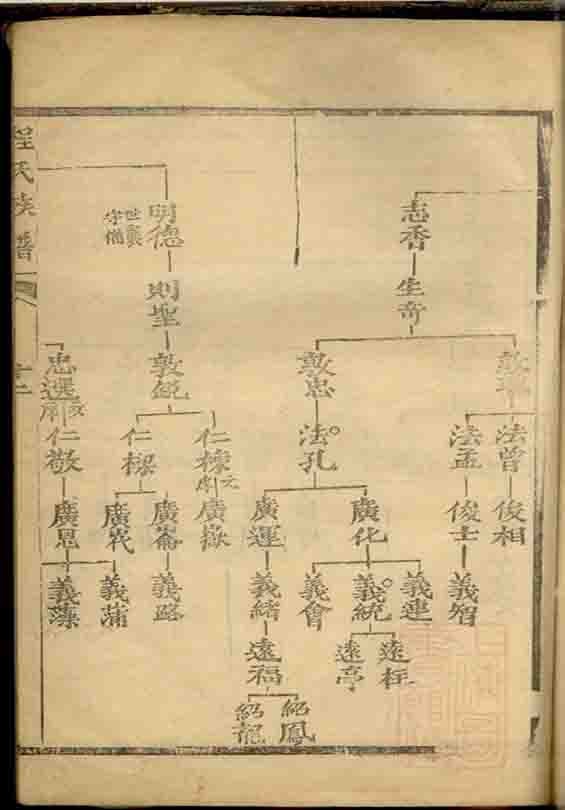 志香
生奇
敦忠
法曾
法孟
法孔
俊相
俊士
廣化
廣運
義智
義連
義統
義會
義緒
遠柱
遠亭
遠福
紹鳳
紹龍
明德
世襲
守備
則聖
敦銳
仁棟
仁樑
廣嶽
廣崙
義路
義蒲
忠選
仁敬
廣恩
義藻
程氏族譜